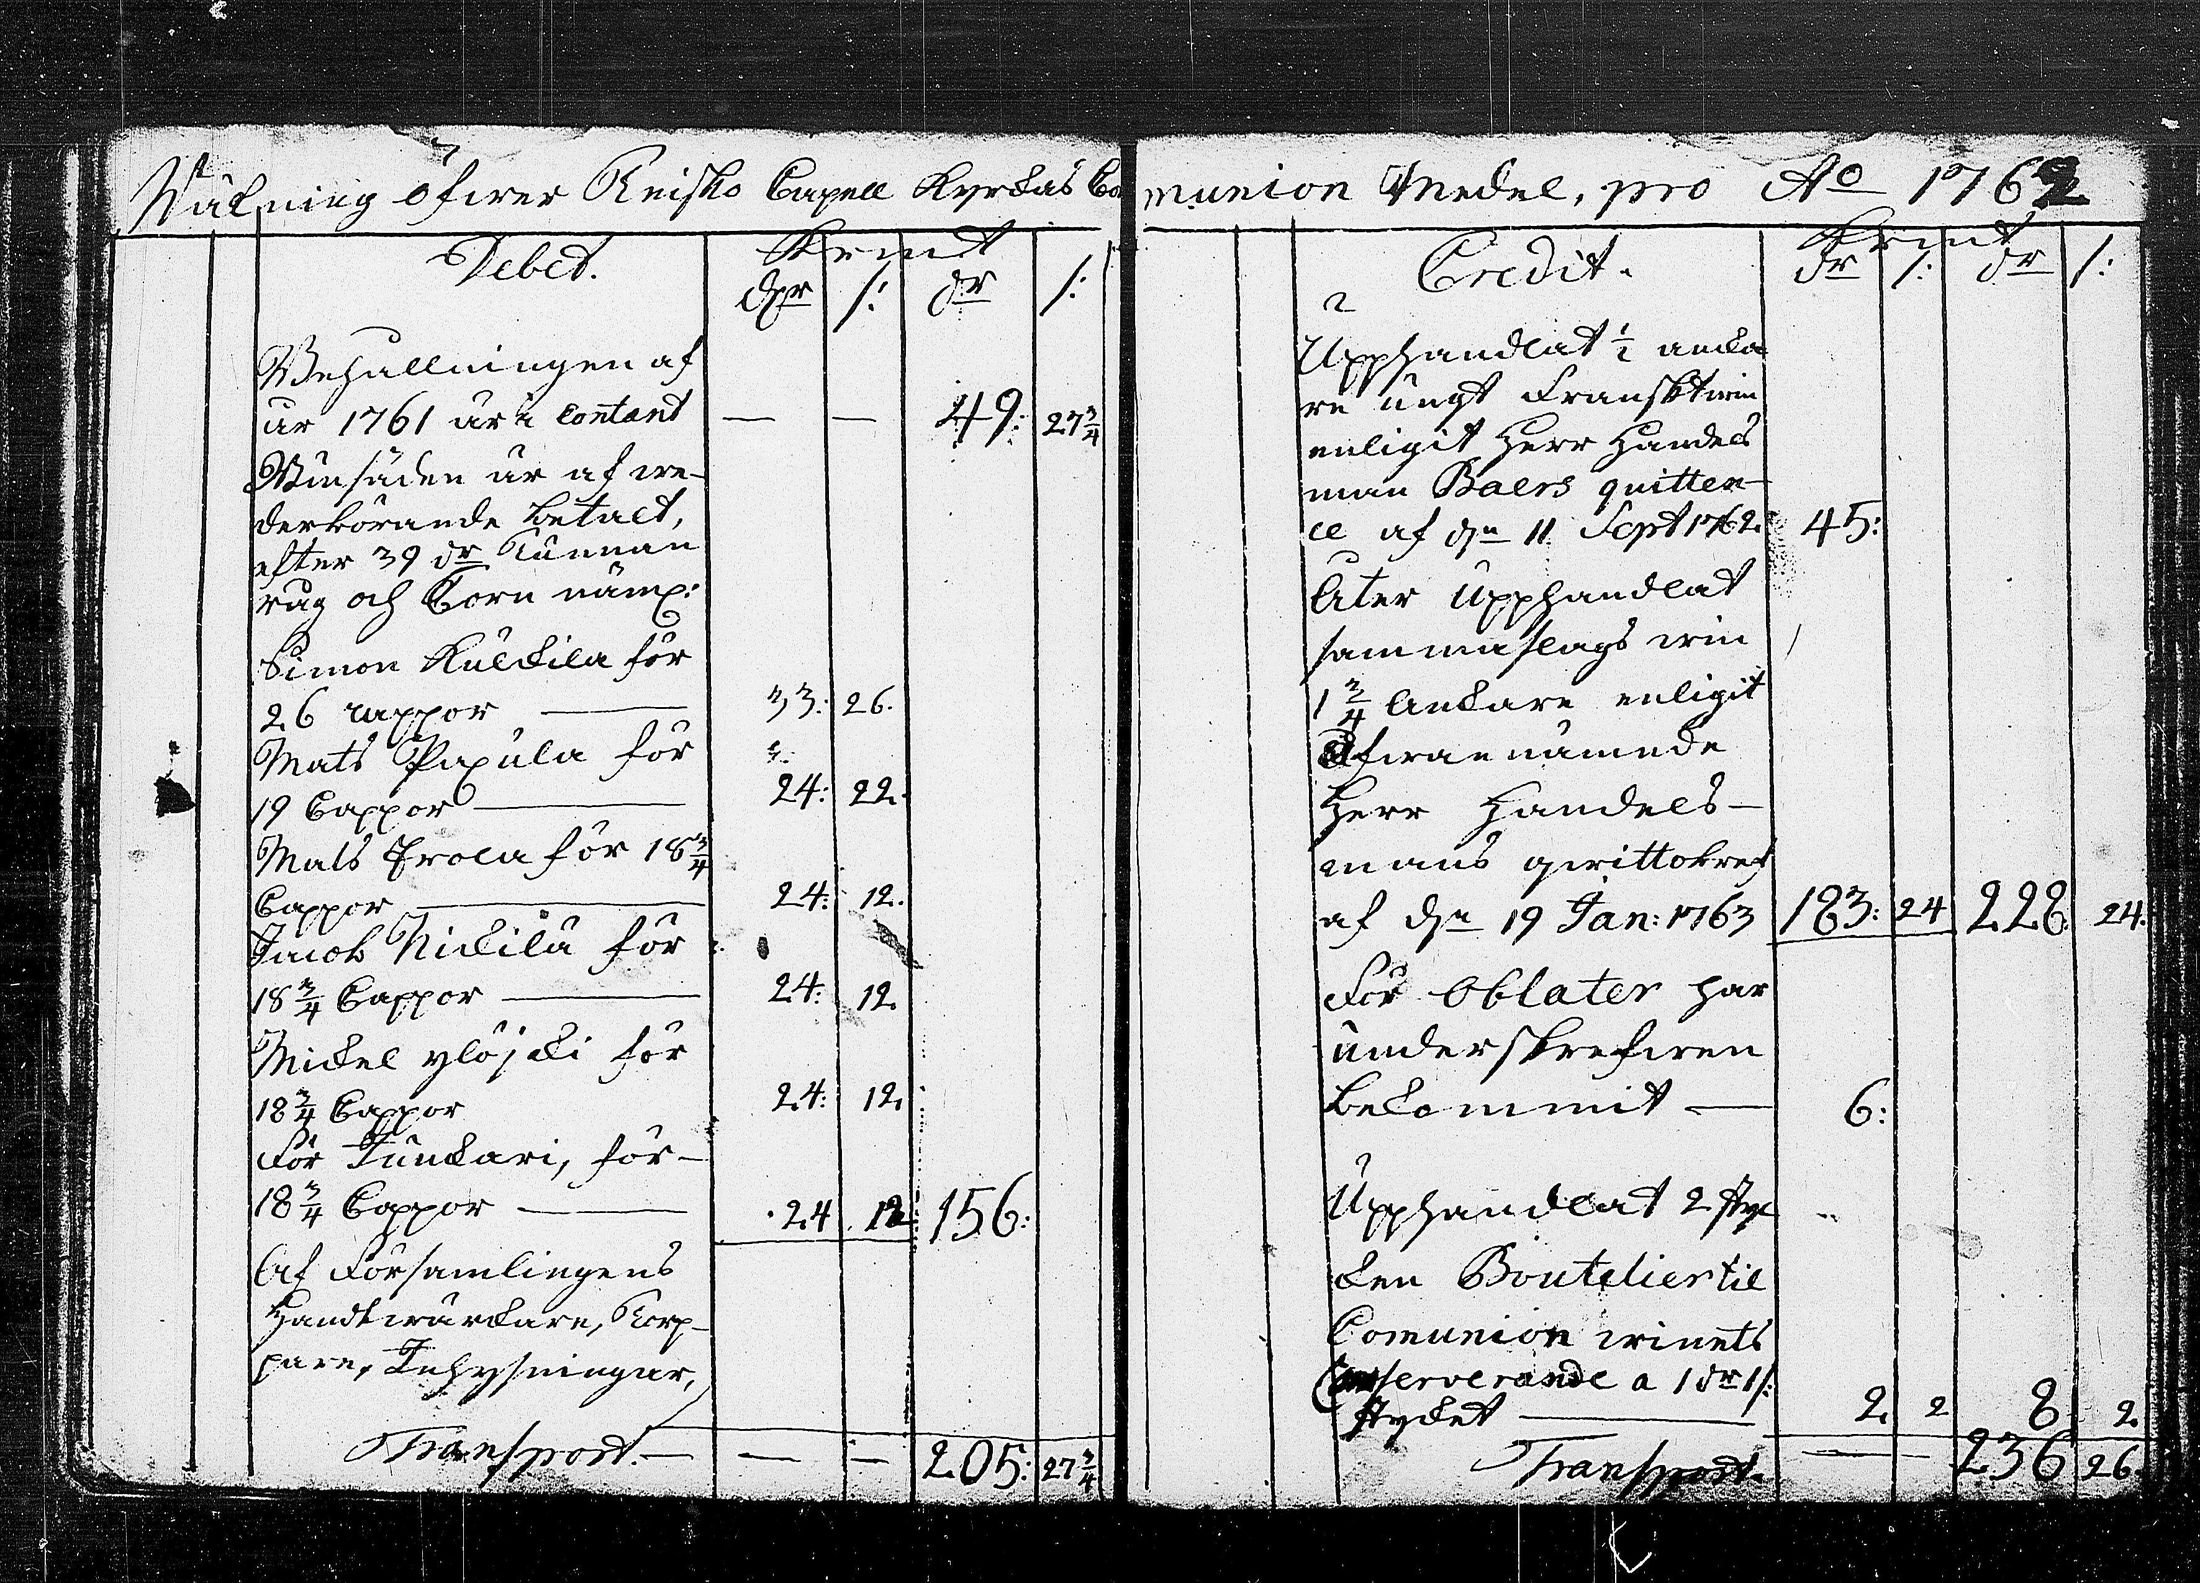 Räkning öfwer Reisko Capell Kyrckas Communion Medel, pro Ao 1762
Debet.
Kpmt
dr /: dr /:
Behållningen af
år 1761 är i contant — — 49: 27 3/4
Winsäden är af we-
derbörande betalt,
efter 39 dr Tunnan
råg och Corn näml:
Simon Kulckila för
26 cappor — 33: 26.
Mats Papula för
19 Cappor — 24: 22.
Mats Erola för 18 3/4
Cappor — 24: 12.
Jacob Nickilä för
18 3/4 Cappor — 24: 12.
Mickel ylöjcki för
18 3/4 Cappor 24: 12.
För Junckari, för
18 3/4 Cappor — 24 12 156:
Af Församlingens
Handtwärckare, Torp-
pare, Inhysningar,
Transport. — — — 205: 27 3/4
Credit.
Kpmt
dr /: dr /:
Upphandlat 1/2 ancka
re ungt Franskt win
enligit Herr Handels
man Baers quitten-
ce af dn 11 Sept 1762. 45:
Åter Upphandlat
samma slags win
1 3/4 Anckare enligit
Ofwannämnde
Herr Handels-
mans qwittobref
af dn 19 Jan: 1763 183: 24 228. 24.
För Oblater har
underskrefwen
bekommit — 6:
Upphandlat 2 styc
ken Boutelier til
Comunion winets
Conserverande a 1 dr 1/:
stycket — 2. 2 8 2.
Transport. — 236 26.